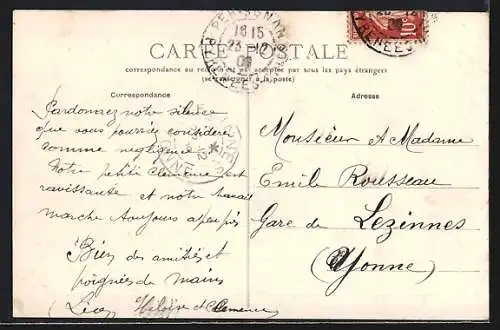 PERPIGNAN
18 15
23 12
09
PYRENEES
10
CARTE POSTALE
correspondance au recto n'est pas acceptée par tous les pays étrangers
(se renseigner à la poste)
Correspondance
Adresse
Pardonnez notre silence
que vous pourriez considérer
comme négligence
Notre petite Clémence est
ravissante et notre travail
marche toujours à peu près
Bien des amitiés et
poignées de mains
Léon Hiloïre et Clémence
Monsieur et Madame
Emile Rousseau
Gare de Lezinnes
(Yonne)